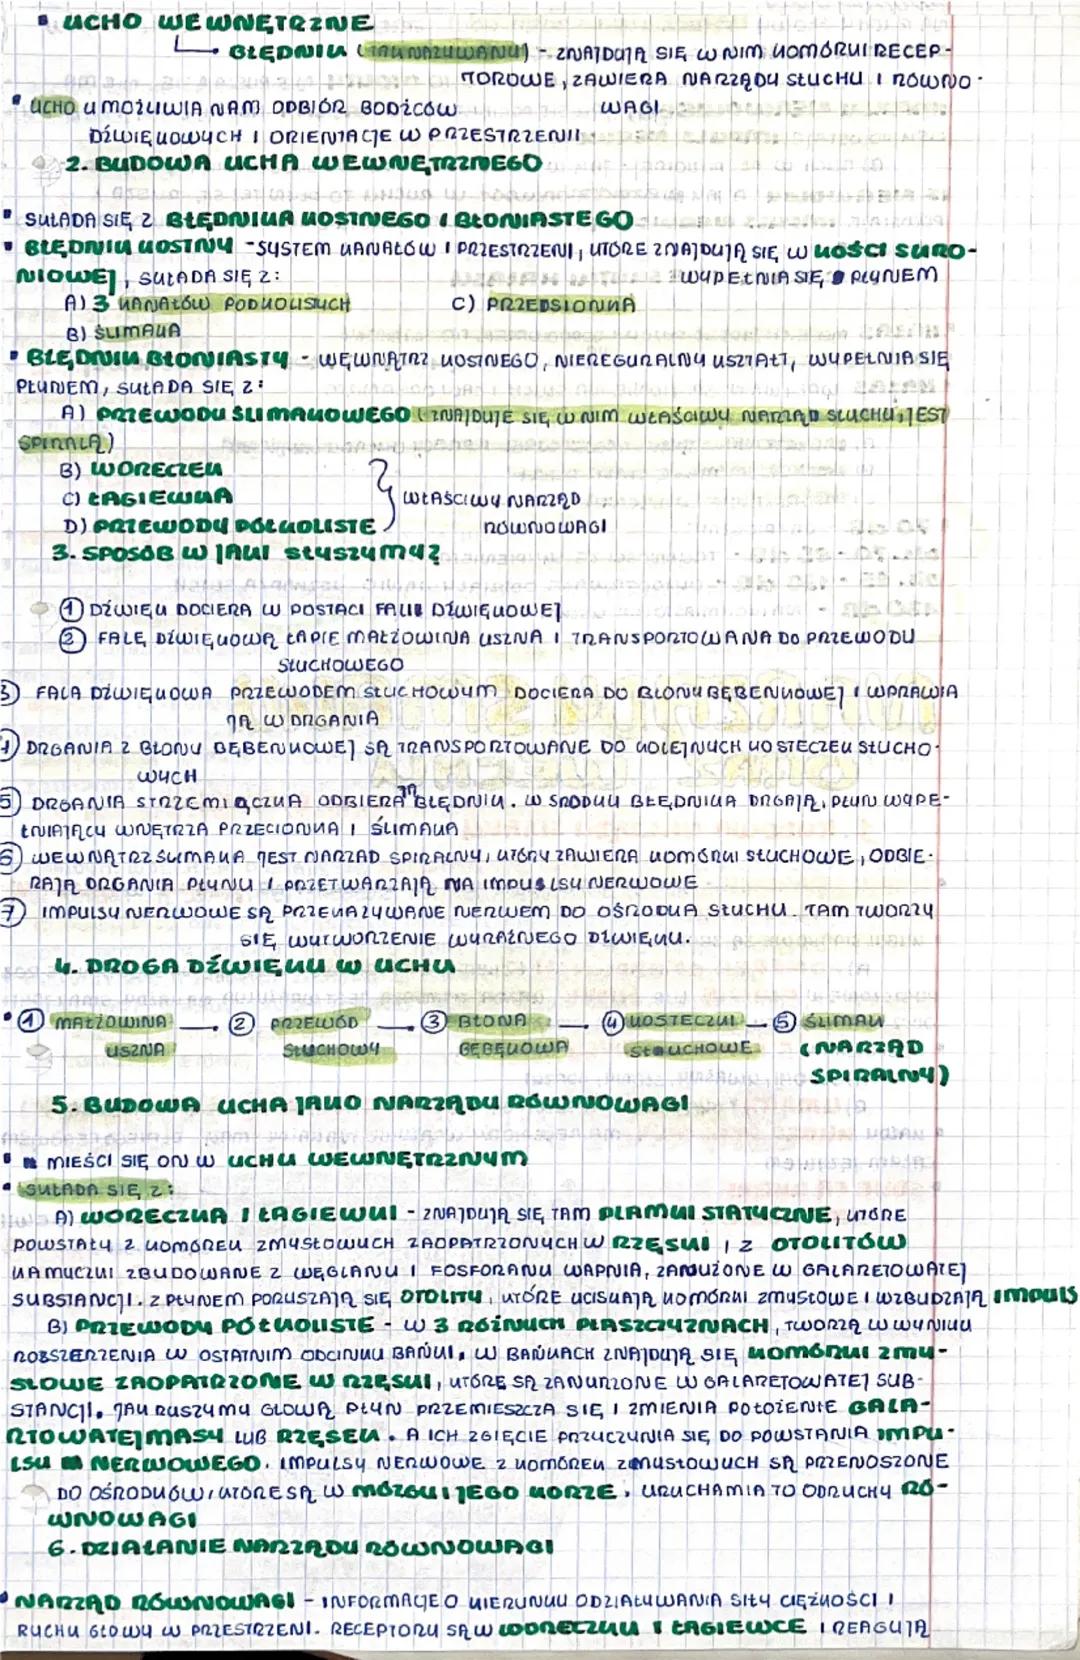 ▪ UCHO WEWNĘTRZNE
BŁĘDNIK (TAK NAZYWANY) - ZNAJDUJĄ SIĘ W NIM KOMÓRKI RECEP-
TOROWE, ZAWIERA NARZĄDY SŁUCHU I RÓWNO-
▪ UCHO UMOŻLIWIA NAM ODBIÓR BODŹCÓW WAGI
DŹWIĘKOWYCH I ORIENTACJĘ W PRZESTRZENI
2. BUDOWA UCHA WEWNĘTRZNEGO
▪ SKŁADA SIĘ Z BŁĘDNIKA KOSTNEGO I BŁONIASTEGO
▪ BŁĘDNIK KOSTNY - SYSTEM KANAŁÓW I PRZESTRZENI, KTÓRE ZNAJDUJĄ SIĘ W KOŚCI SKRO-
NIOWEJ, SKŁADA SIĘ Z: WYPEŁNIA SIĘ PŁYNEM
A) 3 KANAŁÓW PODKOLISYCH C) PRZEDSIONKA
B) ŚLIMAKA
▪ BŁĘDNIK BŁONIASTY - WEWNĄTRZ KOSTNEGO, NIEREGURALNY KSZTAŁT, WYPEŁNIA SIĘ
PŁYNEM, SKŁADA SIĘ Z:
A) PRZEWODU ŚLIMAKOWEGO (ZNAJDUJE SIĘ W NIM WŁAŚCIWY NARZĄD SŁUCHU, JEST
SPIRALĄ)
B) WORECZEK
C) ŁAGIEWKA } WŁAŚCIWY NARZĄD
D) PRZEWODY PÓŁKOLISTE RÓWNOWAGI
3. SPOSÓB W JAKI SŁYSZYMY?
① DŹWIĘK DOCIERA W POSTACI FALI DŹWIĘKOWEJ
② FALĘ DŹWIĘKOWĄ ŁAPIE MAŁŻOWINA USZNA I TRANSPORTOWANA DO PRZEWODU
SŁUCHOWEGO
③ FALA DŹWIĘKOWA PRZEWODEM SŁUCHOWYM DOCIERA DO BŁONY BĘBENKOWEJ I WPRAWIA
JĄ W DRGANIA
④ DRGANIA Z BŁONY BĘBENKOWEJ SĄ TRANSPORTOWANE DO KOLEJNYCH KOSTECZEK SŁUCHO-
WYCH
⑤ DRGANIA STRZEMIĄCZKA ODBIERA JĄ BŁĘDNIK. W ŚRODKU BŁĘDNIKA DRGAJĄ, PŁYN WYPE-
ŁNIAJĄCY WNĘTRZA PRZECIONKA I ŚLIMAKA
⑥ WEWNĄTRZ ŚLIMAKA JEST NARZĄD SPIRALNY, KTÓRY ZAWIERA KOMÓRKI SŁUCHOWE, ODBIE-
RAJĄ DRGANIA PŁYNU I PRZETWARZAJĄ NA IMPULSY NERWOWE
⑦ IMPULSY NERWOWE SĄ PRZEKAZYWANE NERWEM DO OŚRODKA SŁUCHU. TAM TWORZY
SIĘ WYTWORZENIE WYRAŹNEGO DŹWIĘKU.
4. DROGA DŹWIĘKU W UCHU
▪ ① MAŁŻOWINA — ② PRZEWÓD — ③ BŁONA — ④ KOSTECZKI — ⑤ ŚLIMAK
USZNA SŁUCHOWY BĘBĘKOWA SŁUCHOWE (NARZĄD
SPIRALNY)
5. BUDOWA UCHA JAKO NARZĄDU RÓWNOWAGI
▪ MIEŚCI SIĘ ON W UCHU WEWNĘTRZNYM
▪ SKŁADA SIĘ Z:
A) WORECZKA I ŁAGIEWKI - ZNAJDUJĄ SIĘ TAM PLAMKI STATYCZNE, KTÓRE
POWSTAŁY Z KOMÓREK ZMYSŁOWYCH ZAOPATRZONYCH W RZĘSKI I Z OTOLITÓW
KAMYCZKI ZBUDOWANE Z WĘGLANU I FOSFORANU WAPNIA, ZANUŻONE W GALARETOWATEJ
SUBSTANCJI. Z PŁYNEM PORUSZAJĄ SIĘ OTOLITY, KTÓRE UCISKAJĄ KOMÓRKI ZMYSŁOWE I WZBUDZAJĄ IMPULS
B) PRZEWODY PÓŁKOLISTE - W 3 RÓŻNYCH PŁASZCZYZNACH, TWORZĄ W WYNIKU
ROZSZERZENIA W OSTATNIM ODCINKU BAŃKI. W BAŃKACH ZNAJDUJĄ SIĘ KOMÓRKI ZMY-
SŁOWE ZAOPATRZONE W RZĘSKI, KTÓRE SĄ ZANURZONE W GALARETOWATEJ SUB-
STANCJI. JAK RUSZYMY GŁOWĄ PŁYN PRZEMIESZCZA SIĘ I ZMIENIA POŁOŻENIE GALA-
RTOWATEJ MASY LUB RZĘSEK. A ICH ZGIĘCIE PRZYCZYNIA SIĘ DO POWSTANIA IMPU-
LSU NERWOWEGO. IMPULSY NERWOWE Z KOMÓREK ZMYSŁOWYCH SĄ PRZENOSZONE
DO OŚRODKÓW, KTÓRE SĄ W MÓZGU I JEGO KORZE. URUCHAMIA TO ODRUCHY RÓ-
WNOWAGI
6. DZIAŁANIE NARZĄDU RÓWNOWAGI
▪ NARZĄD RÓWNOWAGI - INFORMACJE O KIERUNKU ODZIAŁYWANIA SIŁY CIĘŻKOŚCI I
RUCHU GŁOWY W PRZESTRZENI. RECEPTORY SĄ W WORECZKU I ŁAGIEWCE I REAGUJĄ